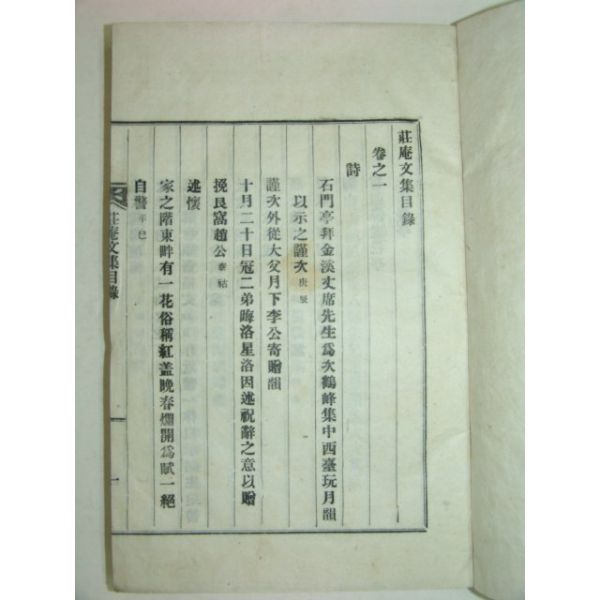 莊庵文集目錄
卷之一
詩
石門亭拜金溪丈席先生爲次鶴峰集中西臺玩月韻
以示之謹次 庚辰
謹次外從大父月下李公寄贈韻
十月二十日冠二弟晦洛星洛因述祝辭之意以贈
挽良窩趙公
述懷
家之階東畔有一花俗稱紅盖晩春爛開爲賦一絕
自警 辛巳
莊庵文集目錄
一